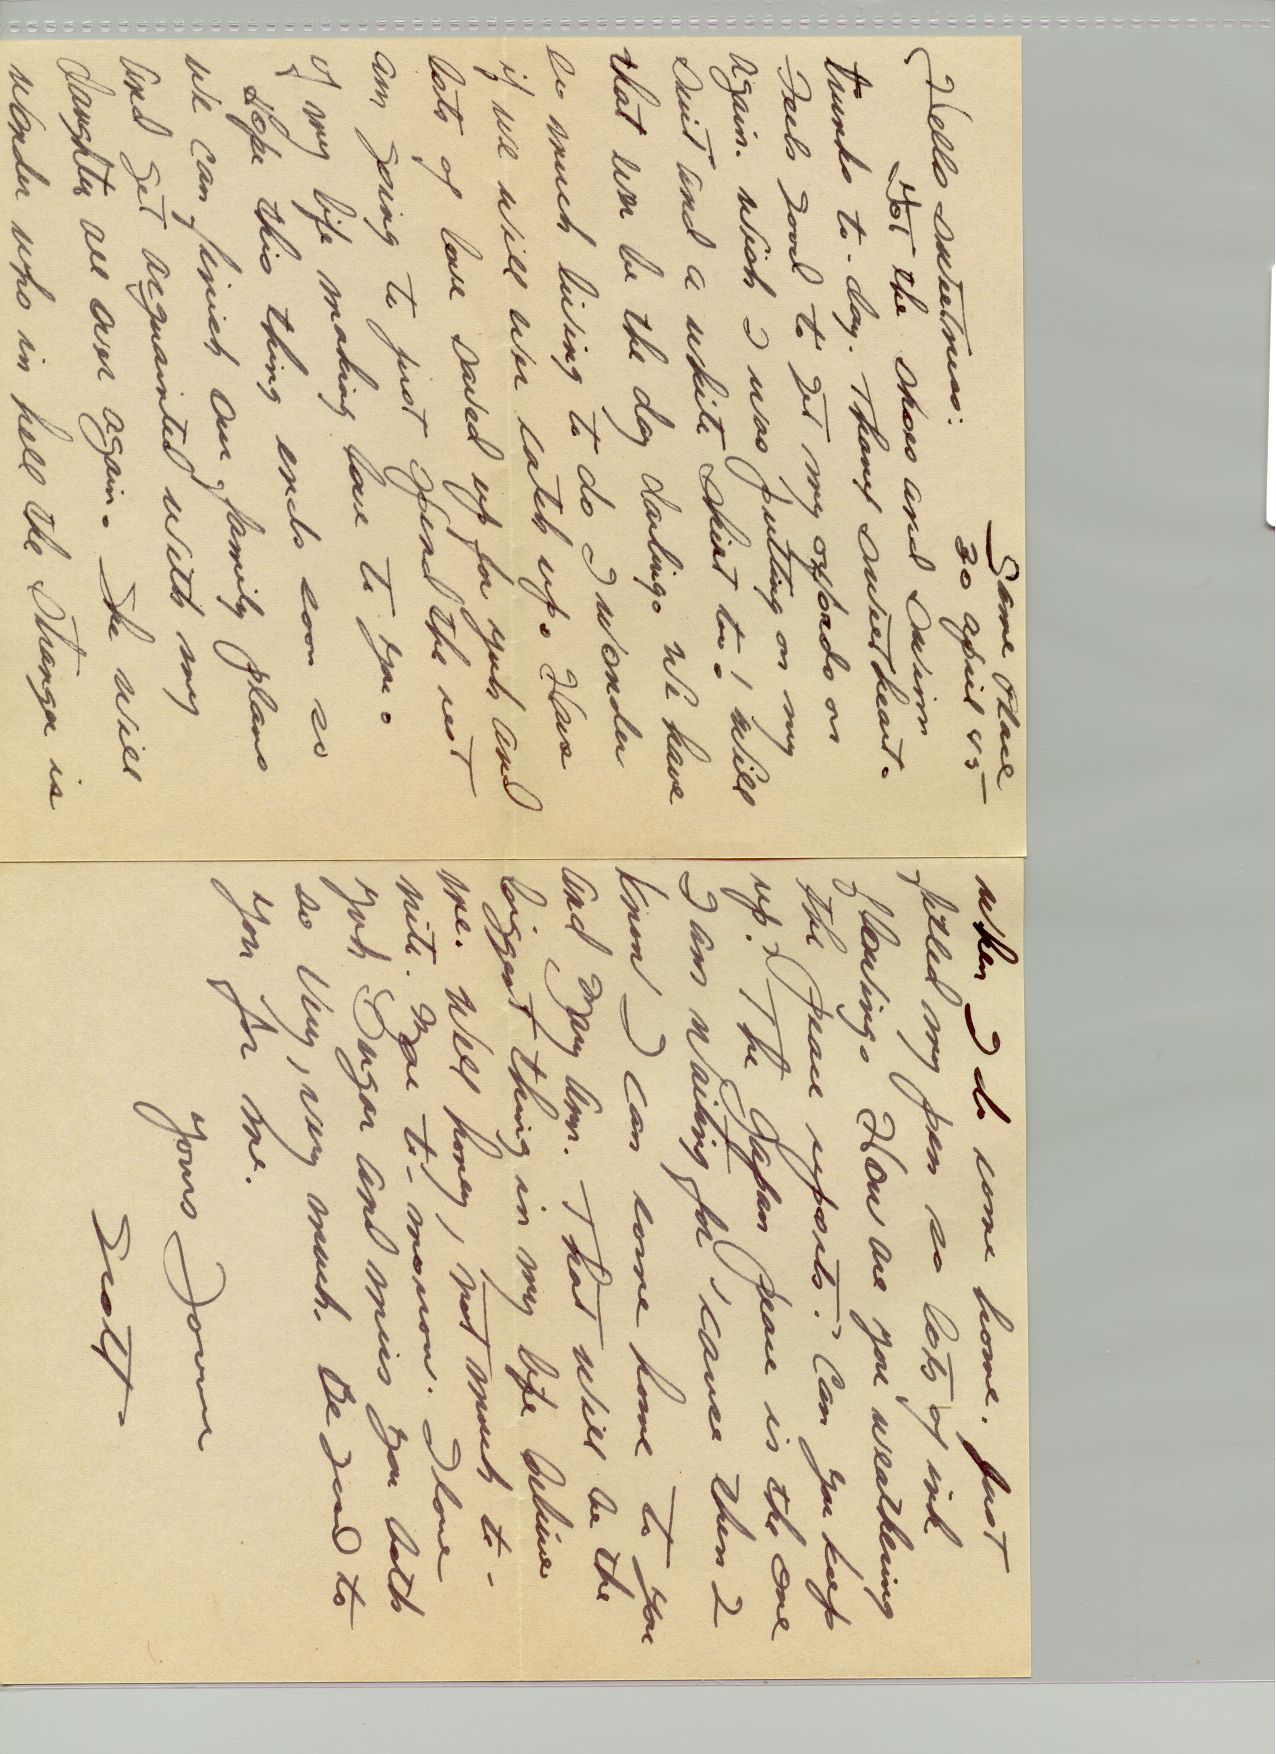 Same Place
30 april 45
Hello Sweetness:
Got the shoes and swim
trunks to-day. Thanx sweetheart.
Feels good to get my oxfords on
again. Wish I was putting on my
suit and a white shirt too! Will
that ever be the day darling. We have
so much living to do I wonder
if we will ever catch up. Have
lots of love saved up for youh and
am going to just spend the rest
of my life making love to you.
Hope this thing ends soon so
we can finish our family plans
and get acquainted with my
daughter all over again. She will
wonder who in hell the stranger is
when I do come home. Just
filled my pen so lots of ink
darling. How are you weathering
the peace reports? Can you keep
up? The Japan peace is the one
I am waiting for 'cause then I
know I can come home to you
and Mary Ann. That will be the
biggest thing in my life believe
me. Well honey, not much to-
nite. More to-morrow. I love
youh Sugar and miss you both
so very, very much. Be good to
you for me.
Yours Forever
Scott